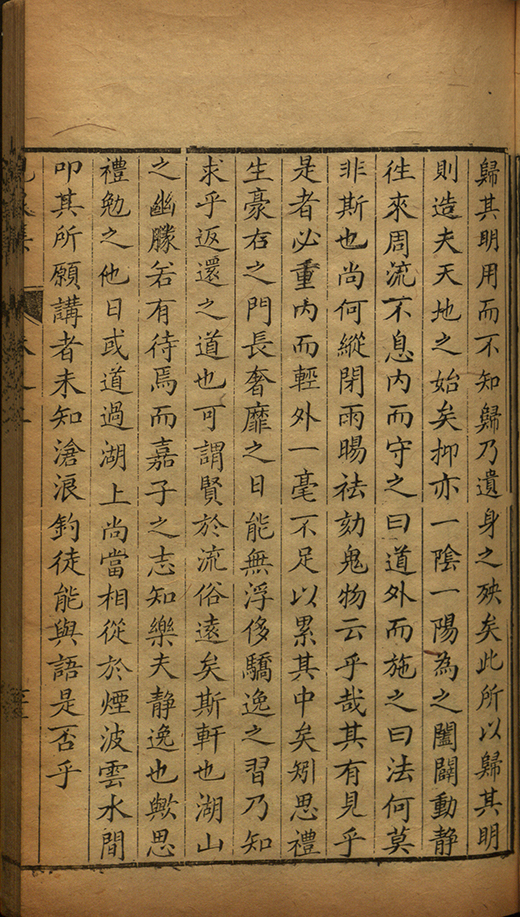 歸其明用而不知歸乃遺身之殃矣此所以歸其明
則造夫天地之始矣抑亦一陰一陽為之闔闢動静
徃來周流不息内而守之曰道外而施之曰法何莫
非斯也尚何縱閉雨暘祛劾鬼物云乎哉其有見乎
是者必重内而輕外一毫不足以累其中矣矧思禮
生豪右之門長奢靡之日能無浮侈驕逸之習乃知
求乎返還之道也可謂賢於流俗遠矣斯軒也湖山
之幽勝若有待焉而嘉子之志知樂夫静逸也歟思
禮勉之他日或道過湖上尚當相從於煙波雲水間
叩其所願講者未知滄浪釣徒能與語是否乎